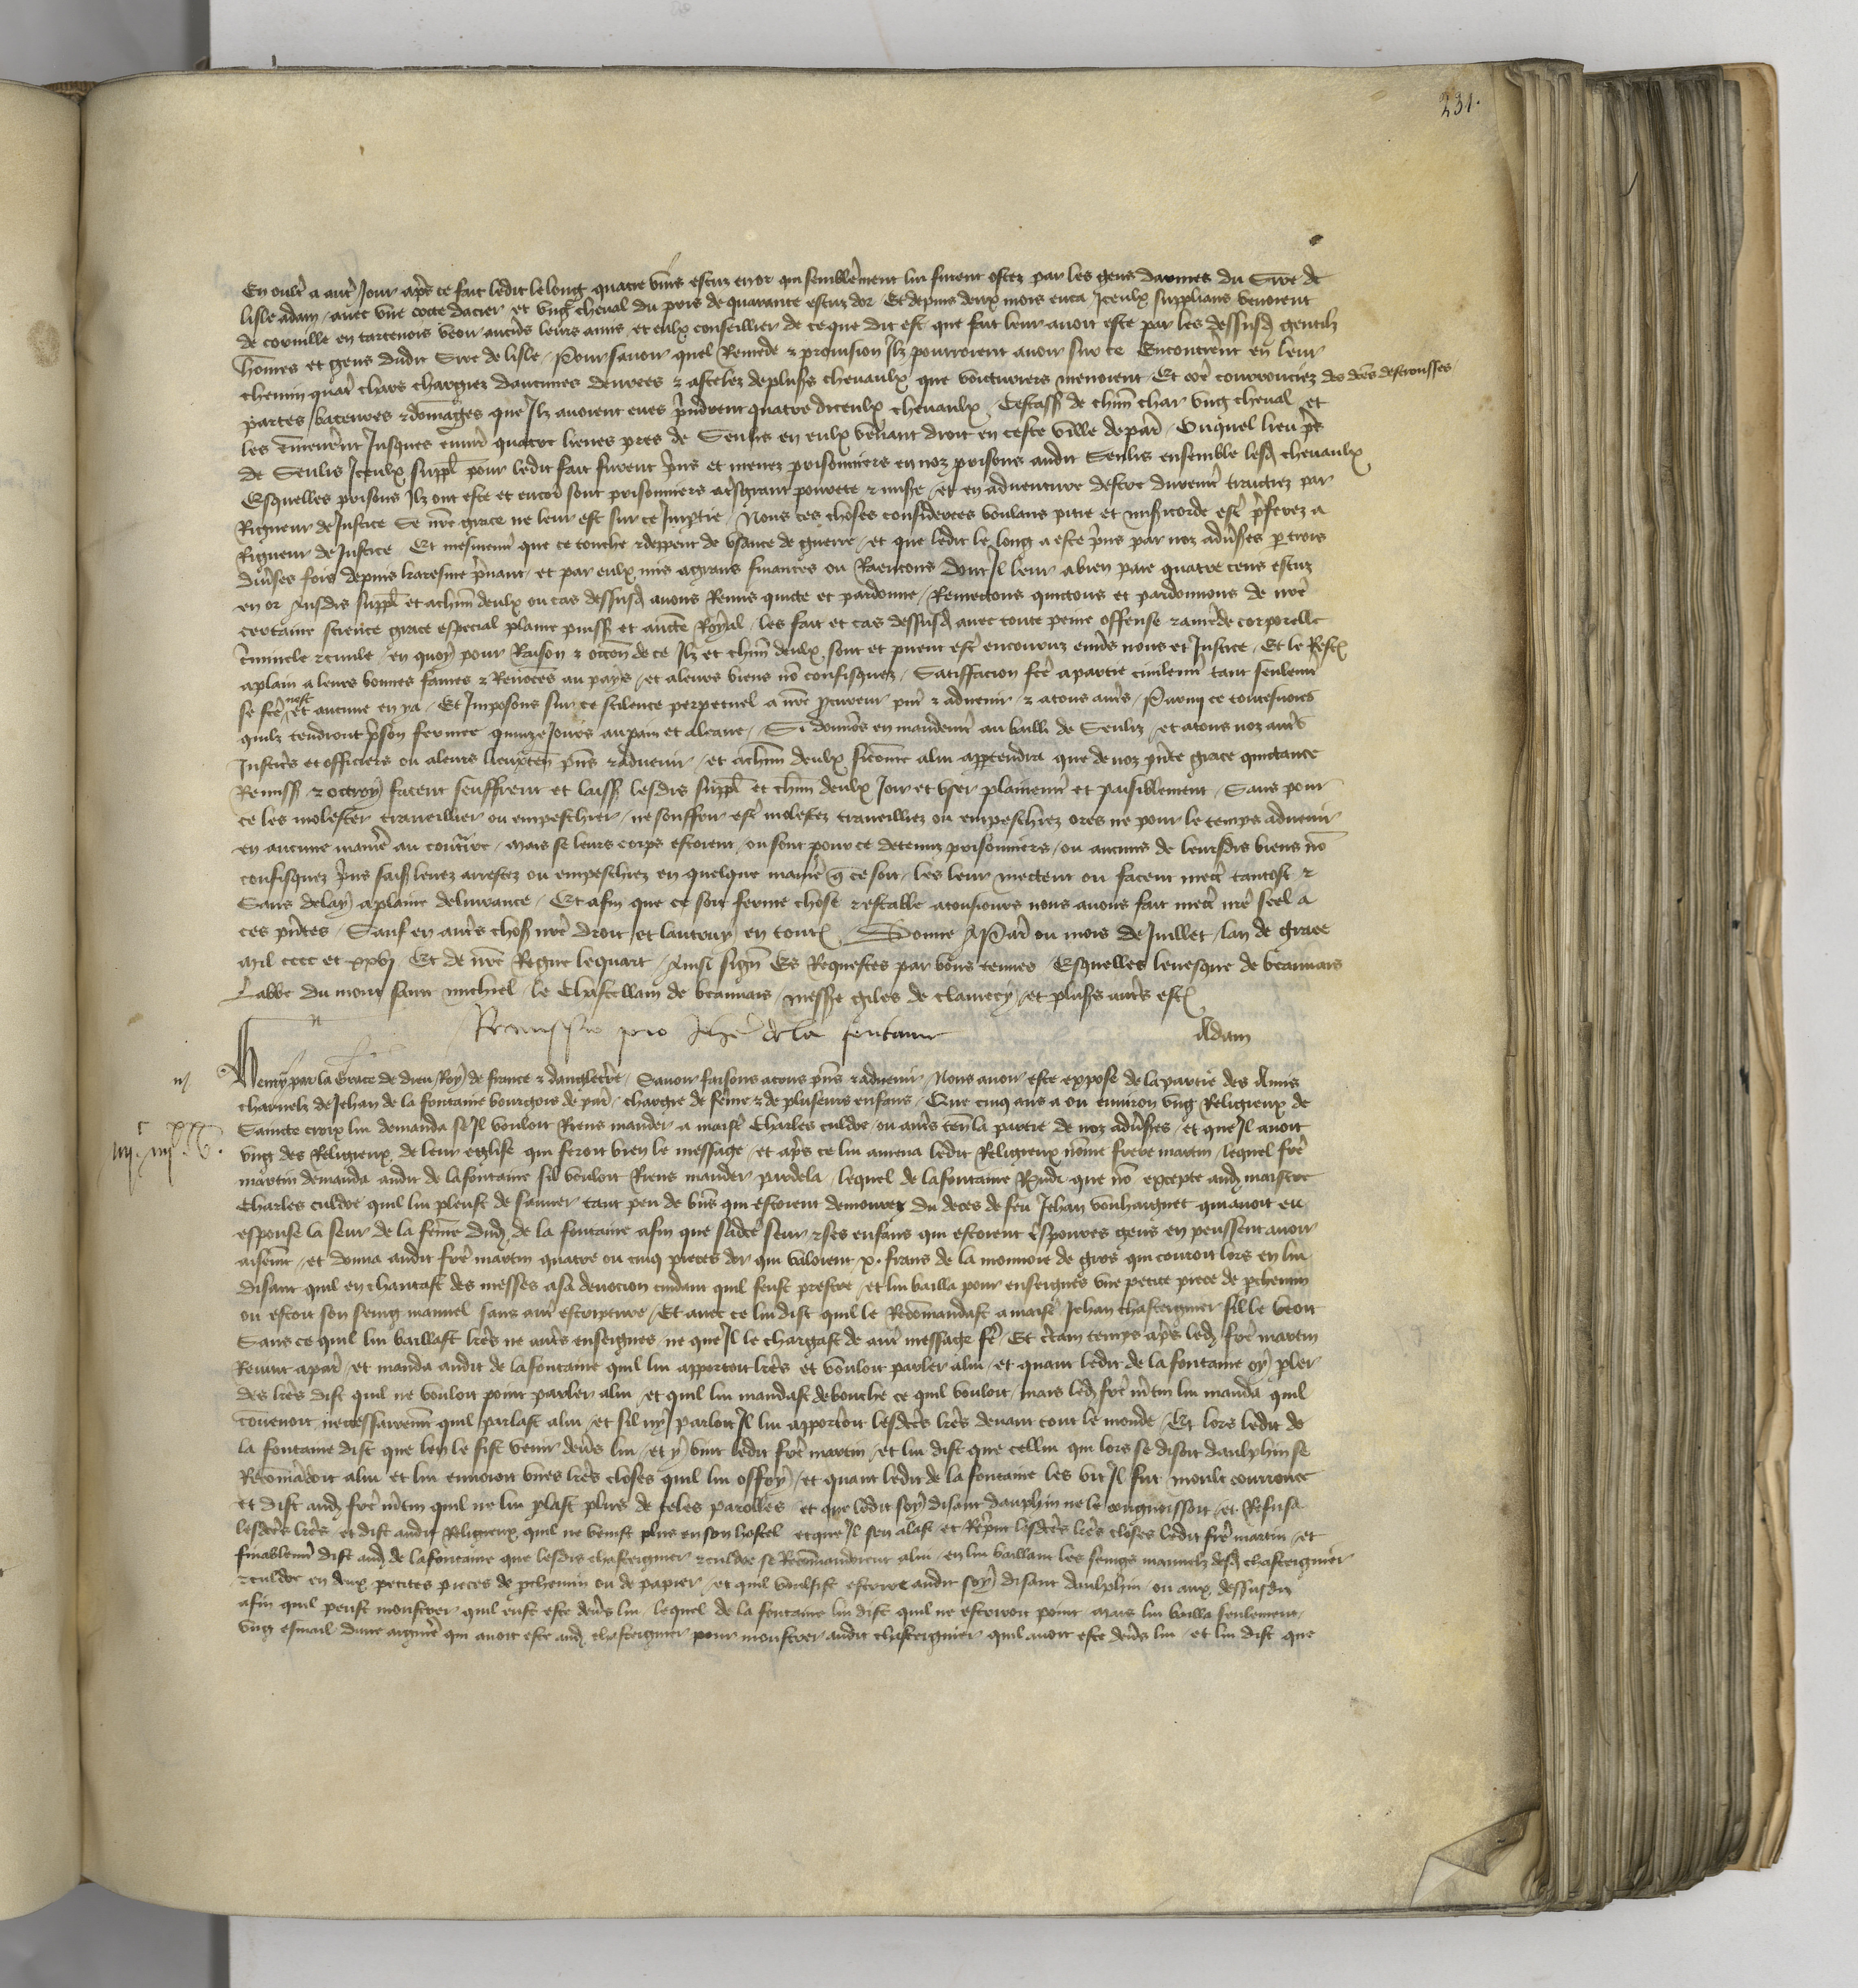 231.
En oultr a autr Jour aps ce fait ledit lelong quatre vins escuz en or qui semblement lui furent ostez par les gens darmes du Sire de
lisle adam / auec vne cotte dacier et vng cheval du pris de quarante escuz dor Et depuis deux mois enca Iceulx supplians venoient
de couuille en tartenois veoir aucuns leurs amis et eulx conseillier de ce que dit est que fait leur auoit este par les dessusd gentilz
homes et gens dudit Sire de lisle / Pour sauoir quel Remede & prouision Ilz pourroient auoir sur ce Encontrerent en leur
chemin quatr chars chargiez daucunes denrees & astelez de plusrs cheuaulx que voicturiers menoient Et coe courrouciez des dces destrousses
partes bateures & domages que Ilz auoient eues prindrent quatre diceulx cheuaulx Cestassr de chun char vng cheual et
les emenerent Jusques enuir quatre lieues pres de Senlis en eulx venant droit en ceste ville de par Ouquel lieu ps
de Senlis Iceulx suppl pour ledit fait furent prins et menez prisonniers en noz prisons audit Senlis ensemble lesd cheuaulx
Esquelles prisons Ilz ont este et encor sont prisonniers a tsgrant pourete & misere / et en aduenture destre durement traictiez par
Rigueur de Justice Se nre grace ne leur est sur ce Imptie / Nous ces choses considerees voulans pitie et misericorde estr prferez a
Rigueur de Justice Et mesmement que ce touche & deppent de vsance de guerre / et que ledit le long a este prins par noz aduersres p trois
diuses fois depuis karesme prnant / et par eulx mis a grans finances ou Raencons dont Il leur a bien paie quatre cens escuz
en or Ausdis suppl et a chun deulx ou cas dessusd auons Remis quicte et pardonne / Remectons quictons et pardonnons de nre
certaine science grace especial plaine puiss et aucte Royal / les fait et cas dessusd auec toute peine offense & amende corporelle
criminele & ciuile / en quoy pour Raison & occon de ce Ilz et chun deulx sont et pueent estr encouruz enuers nous et Justice / Et le Rest
aplain a leurs bonnes fames & Renomees au pays / et a leurs biens no confisquez / Satiffacion fce apartie ciuilement tant seulement
se fce nest et aucune en ya / Et Imposons sur ce silence perpetuel a nre pcureur pnt & aduenir & a tous autrs / Parmy ce toutesuoies
quilz tendront prison fermee quinze Jours au pain et aleaue / Si donnos en mandement au bailli de Senliz / et a tous noz autrs
Justicrs et officiers ou a leurs lieuxten pns & aduenir / et a chun deulx sicome a lui appartendra que de noz pnte grace quictance
Remiss & octroy facent seuffrent et laiss lesdis suppl et chun deulx Joir et vser plainement et paisiblement / Sans pour
ce les molester trauaillier ou empeschier / ne souffrir estr molestez trauailliez ou empeschiez ores ne pour le temps aduenir
en aucune manie au contraire / Mais se leurs corps estoient / ou sont pour ce detenuz prisonniers / ou aucuns de leursdis biens no
confisquez prins saisi leuez arrestez ou empeschiez en quelque manie q ce soit / les leur mectent ou facent mectr tantost &
Sans delay a plaine deliurance / Et afin que ce soit ferme chose & estable a tousiours nous auons fait mectr nre seel a
ces pntes / Sauf en autrs chos nre droit et lautruy en tout Donne A Par ou mois de Juillet / lan de grace
mil cccc et xxvj Et de nre Regne le quart / Ainsi sign Es Requestes par vous tenues Esquelles leuesque de beauuais
Labbe du mont saint michiel / le Chastellain de beauuais / messire giles de clamecy / et plusrs autrs est
Remissio pro Johe de la fontaine Adam
Henry par la Grace de dieu Roy de france & dangleterre Sauoir faisons a tous pns & aduenir Nous auoir este expose de la partie des Amis
charnelz de Jehan de la fontaine bourgois de par / chargie de feme & de plusieurs enfans / Que cinq ans a ou enuiron vng Religieux de
Saincte croix lui demanda se Il vouloit Riens mander a maistr Charles culdoe / ou autrs ten la partie de noz aduersres / et que Il auoit
vng des Religieux de leur eglise qui feroit bien le message / et aps ce lui amena ledit Religieux nome frere martin / lequel fre
martin demanda audit de la fontaine sil vouloit Riens mander pardela / lequel de la fontaine Rndi que no excepte aud maistre
Charles culdoe quil lui pleust de sauuer tant peu de biens qui estoient demourez du deces de feu Jehan vonhaignet qui auoit eu
espouse la seur de la feme dud de la fontaine afin que sadce seur & ses enfans qui estoient tspoures gens en peussent auoir
aisement / et donna audit fre martin quatre ou cinq pieces dor qui valoient x. frans de la monnoie de gros qui couroit lors en lui
disant quil en chantast des messes a sa deuocion cuidant quil feust prestre / et lui bailla pour enseignes vne petite piece de pchemin
ou estoit son seing manuel sans autr escripture / Et auec ce lui dist quil le Recomandast a maistr Jehan chasteignier sil le veoit
Sans ce quil lui baillast lres ne autrs enseignes / ne que Il le chargast de autr message fe Et ctain temps aps led fre martin
Reuint a par / et manda audit de la fontaine quil lui apportoit lres et vouloit parler a lui / et quant ledit de la fontaine oy pler
des lres dist quil ne vouloit point parler a lui / et quil lui mandast de bouche ce quil vouloit / mais led fre mtin lui manda quil
conuenoit necessairement quil parlast a lui / et sil ny parloit Il lui apportoit lesdces lres deuant tout le monde / Et lors ledit de
la fontaine dist que len le fist venir deuers lui / et y vint ledit fre martin / et lui dist que cellui qui lors se disoit daulphin se
Recomandoit a lui et lui enuoioit vnes lres closes quil lui offry / et quant ledit de la fontaine les vit Il fut moult courrouce
et dist aud fre mtin quil ne lui plast plus de teles parolles et que ledit soy disant dauphin ne le congnoissoit / et Refusa
lesdces lres et dist audit Religieux quil ne venist plus en son hostel et que Il sen alast et Reprint lesdces lres closes ledit fre martin / et
finablement dist aud de la fontaine que lesdis chasteignier & culdoe se Recommandoient a lui / en lui baillant les seings manuelz desd chasteignier
& culdoe en deux petites pieces de pchemin ou de papier / et quil voulsist escrire audit soy disant daulphin / ou aux dessusdis
afin quil peust monstrer quil eust este deuers lui / lequel de la fontaine lui dist quil ne escriroit point mais lui bailla seulement
vng esmail dune aiguiere qui auoit este aud chasteignier pour monstrer audit chasteignier quil auoit este deuers lui et lui dist que